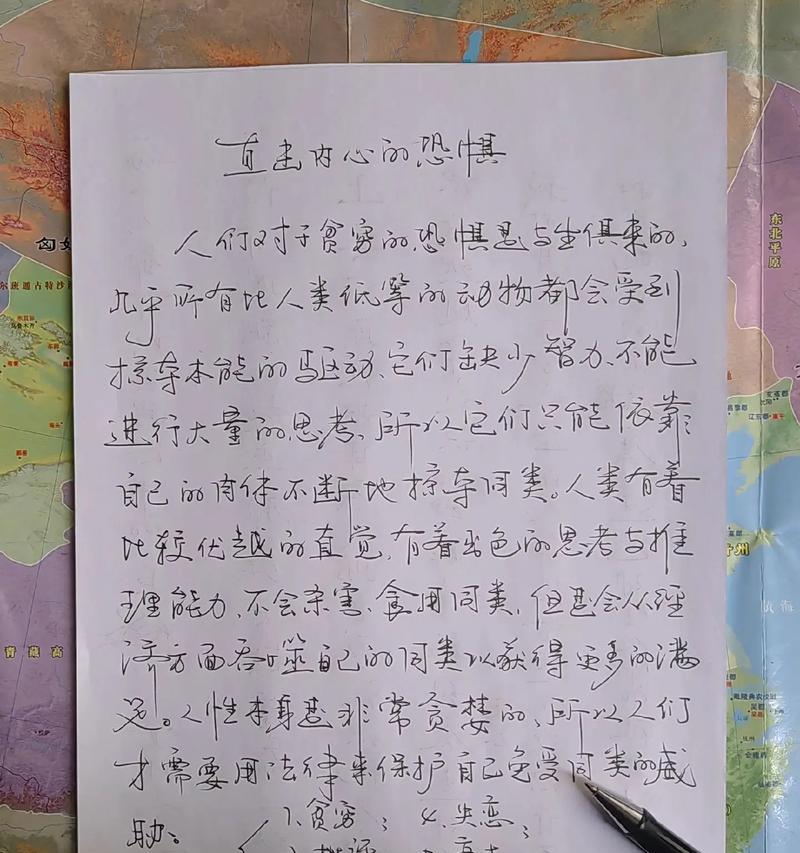 直击内心的恐惧
人们对于贫穷的恐惧是与生俱来的、
几乎所有比人类低等的动物都会受到
掠夺本能的驱动、它们缺少智力、不能
进行大量的思考、所以它们只能依靠
自己的肉体不断地掠夺同类。人类有着
比较优越的直觉、有着出色的思考与推
理能力、不会杀害、食用同类、但是会从经
济方面吞噬自己的同类以获得更多的满
足。人性本身是非常贪婪的、所以人们
才需要用法律来保护自己免受同类的威
胁。
1、贫穷; 4、失恋;
东北平原
青藏高